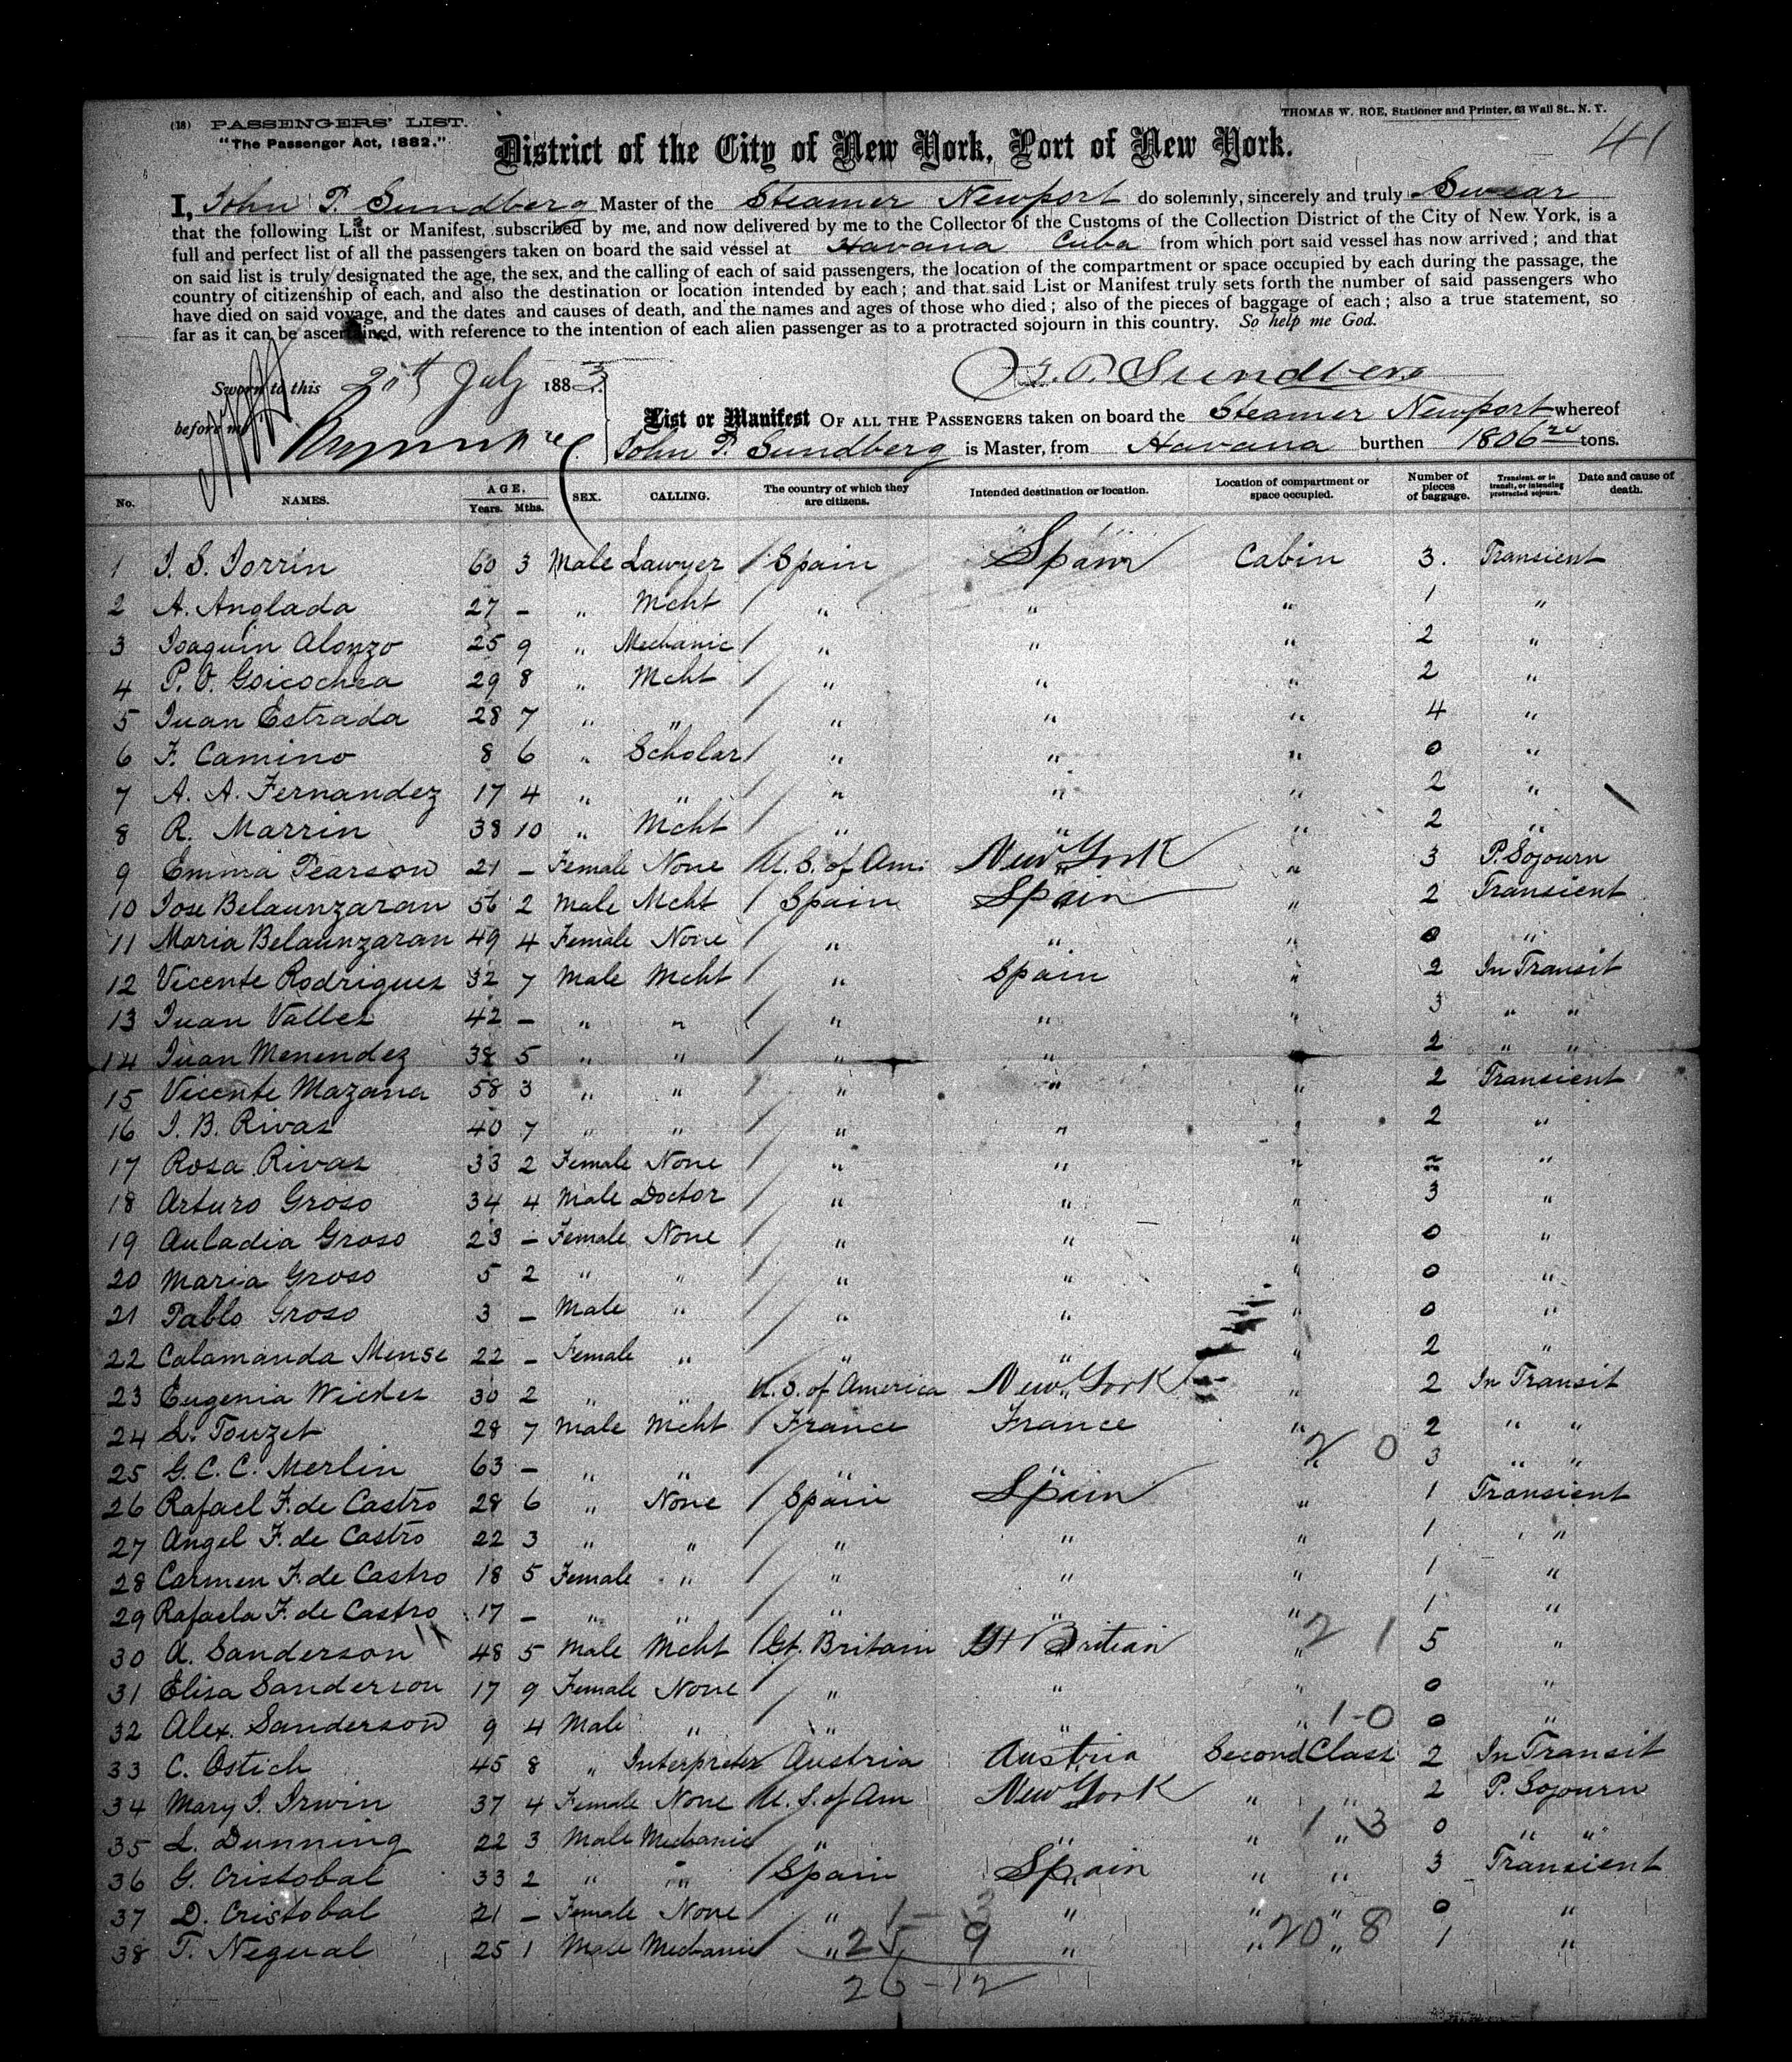 (18) PASSENGERS' LIST.
THOMAS W. ROE, Stationer and Printer, 63 Wall St., N. Y.
"The Passenger Act, 1882."
41
District of the City of New York, Port of New York.
I, John P. Sundberg Master of the Steamer Newport do solemnly, sincerely and truly Swear
that the following List or Manifest, subscribed by me, and now delivered by me to the Collector of the Customs of the Collection District of the City of New York, is a
full and perfect list of all the passengers taken on board the said vessel at Havana Cuba from which port said vessel has now arrived; and that
on said list is truly designated the age, the sex, and the calling of each of said passengers, the location of the compartment or space occupied by each during the passage, the
country of citizenship of each, and also the destination or location intended by each; and that said List or Manifest truly sets forth the number of said passengers who
have died on said voyage, and the dates and causes of death, and the names and ages of those who died; also of the pieces of baggage of each; also a true statement, so
far as it can be ascertained, with reference to the intention of each alien passenger as to a protracted sojourn in this country. So help me God.
Sworn to this July 1883
J. P. Sundberg
before me
List or Manifest OF ALL THE PASSENGERS taken on board the Steamer Newport whereof
John P. Sundberg is Master, from Havana burthen 1806 20 tons.
No. NAMES. AGE. Years. Mths. SEX. CALLING. The country of which they are citizens. Intended destination or location. Location of compartment or space occupied. Number of pieces of baggage. Transient, or in transit, or intending protracted sojourn. Date and cause of death.
1 J. S. Jorrin 60 3 Male Lawyer / Spain Spain Cabin 3. Transient
2 A. Anglada 27 - " Mcht / " " " 1 "
3 Joaquin Alonzo 25 9 " Mechanic / " " " 2 "
4 P. O. Goicochea 29 8 " Mcht / " " " 2 "
5 Juan Estrada 28 7 " " / " " " 4 "
6 F. Camino 8 6 " Scholar / " " " 0 "
7 A. A. Fernandez 17 4 " " / " " " 2 "
8 R. Marrin 38 10 " Mcht / " " " 2 "
9 Emma Pearson 21 - Female None U. S. of Am. New York " 3 P. Sojourn
10 Jose Belaunzaran 56 2 Male Mcht / Spain Spain " 2 Transient
11 Maria Belaunzaran 49 4 Female None / " " " 0 "
12 Vicente Rodrigues 32 7 Male Mcht / " Spain " 2 In Transit
13 Juan Valles 42 - " " / " " " 3 " "
14 Juan Menendez 38 5 " " / " " " 2 " "
15 Vicente Mazana 58 3 " " / " " " 2 Transient
16 J. B. Rivas 40 7 " " / " " " 2 "
17 Rosa Rivas 33 2 Female None / " " " "
18 Arturo Groso 34 4 Male Doctor / " " " 3 "
19 Auladia Groso 23 - Female None / " " " 0 "
20 Maria Groso 5 2 " " / " " " 0 "
21 Pablo Groso 3 - Male " / " " " 0 "
22 Calamanda Mense 22 - Female " / " " " 2 "
23 Eugenia 30 2 " " U. S. of America New York " 2 In Transit
24 L. Touzet 28 7 Male Mcht / France France " 2 " "
25 G. C. C. Merlin 63 - " " / " " " 2 0 3 " "
26 Rafael F. de Castro 28 6 " None / Spain Spain " 1 Transient
27 Angel F. de Castro 22 3 " " / " " " 1 "
28 Carmen F. de Castro 18 5 Female " / " " " 1 "
29 Rafaela F. de Castro 17 - " " / " " " 1 "
30 A. Sanderson 48 5 Male Mcht / Gt. Britain Gt Britian " 2 1 5 "
31 Elisa Sanderson 17 9 Female None / " " " 0 "
32 Alex. Sanderson 9 4 Male " / " " " 1-0 0 "
33 C. Ostich 45 8 " Interpreter Austria Austria Second Class 2 In Transit
34 Mary J. Irwin 37 4 Female None U. S. of Am New York " " 2 P. Sojourn
35 L. Dunning 22 3 Male Mechanic " " " " 1 3 0 " "
36 G. Cristobal 33 2 " " / Spain Spain " " 3 Transient
37 D. Cristobal 21 - Female None " 1-3 " " " 0 "
38 T. Negual 25 1 Male Mechanic / " 25 9 " " " 20 8 1 "
26-12